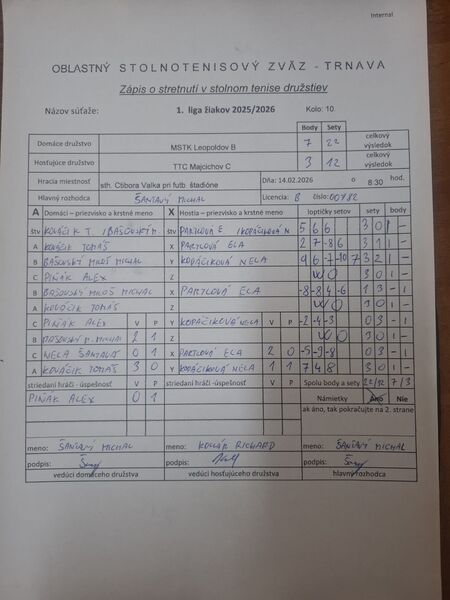 Internal
OBLASTNÝ STOLNOTENISOVÝ ZVÄZ - TRNAVA
Zápis o stretnutí v stolnom tenise družstiev
Názov súťaže: 1. liga žiakov 2025/2026 Kolo: 10.
Body Sety
Domáce družstvo MSTK Leopoldov B 7 22 celkový výsledok
Hosťujúce družstvo TTC Majcichov C 3 12 celkový výsledok
Hracia miestnosť sth. Ctibora Valka pri futb. štadióne Dňa: 14.02.2026 o 8:30 hod.
Hlavný rozhodca ŠANTAVÝ MICHAL Licencia: B číslo: 00782
A Domáci – priezvisko a krstné meno X Hostia – priezvisko a krstné meno loptičky setov sety body
štv KOVÁČIK T. štv PARTLOVÁ E. 5 6 6 3 0 1 -
A KOVÁČIK TOMÁŠ X PARTLOVÁ ELA 2 7 -8 6 3 1 1 -
B BAŠOVSKÝ MILOŠ MICHAL Y KOVÁČIKOVÁ NELA 9 6 -7 -10 7 3 2 1 -
C PIŇÁK ALEX Z WO 3 0 1 -
B BAŠOVSKÝ MILOŠ MICHAL X PARTLOVÁ ELA -8 -8 4 -6 1 3 - 1
A KOVÁČIK TOMÁŠ Z WO 3 0 1 -
C PIŇÁK ALEX V P Y KOVÁČIKOVÁ NELA V P -2 -4 -3 0 3 - 1
B BAŠOVSKÝ M. MICHAL 2 1 Z WO 3 0 1 -
C NELA ŠANTAVÁ 0 1 X PARTLOVÁ ELA 2 0 -5 -9 -8 0 3 - 1
A KOVÁČIK TOMÁŠ 3 0 Y KOVÁČIKOVÁ NELA 1 1 7 4 8 3 0 1 -
striedaní hráči - úspešnosť V P striedaní hráči - úspešnosť V P Spolu body a sety 22/12 7/3
PIŇÁK ALEX 0 1 Námietky Áno Nie
ak áno, tak pokračujte na 2. strane
meno: ŠANTAVÝ MICHAL meno: KOLLÁR RICHARD meno: ŠANTAVÝ MICHAL
podpis: podpis: podpis:
vedúci domáceho družstva vedúci hosťujúceho družstva hlavný rozhodca